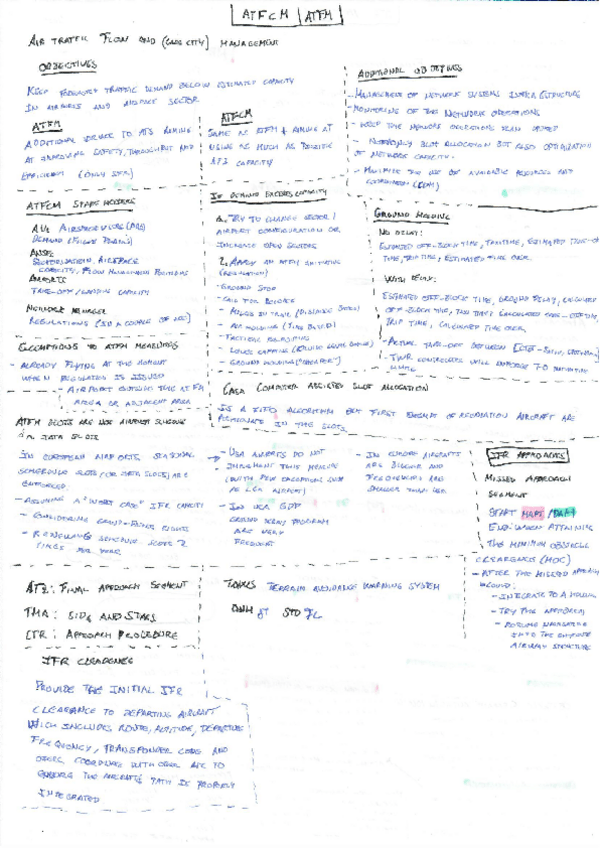 ATFCM | ATFM
AIR TRAFFIC FLOW AND (CAPACITY) MANAGEMENT
OBJECTIVES
KEEP TRAFFIC DEMAND BELOW ESTIMATED CAPACITY
IN AIRPORTS AND AIRSPACE SECTOR
ATFM
ADDITIONAL SERVICE TO ATS AIMING
AT IMPROVING SAFETY, THROUGHPUT AND
EFFICIENCY
ATFCM
SAME AS ATFM + AIMING AT
USING AS MUCH AS POSSIBLE
ATS CAPACITY
ADDITIONAL OBJECTIVES
- MANAGEMENT OF NETWORK SYSTEMS INFRASTRUCTURE
- MONITORING OF THE NETWORK OPERATIONS
- KEEP THE NETWORK OPERATIONS PLAN
- NOT ONLY SLOT ALLOCATION BUT ALSO OPTIMIZATION
OF NETWORK CAPACITY
- MAXIMIZE THE USE OF AVAILABLE RESOURCES AND
(CDM)
ATFCM STAKEHOLDERS
AU: AIRSPACE USERS
DEMAND (FLIGHT PLANS)
ANSP:
SECTORISATION, AIRSPACE
CAPACITY, FLOW MANAGEMENT POSITIONS
AIRPORTS
TAKE-OFF / LANDING CAPACITY
NETWORK MANAGER
REGULATIONS
IF DEMAND EXCEEDS CAPACITY
1. TRY TO CHANGE SECTOR /
AIRPORT CONFIGURATION OR
INCREASE OPEN SECTORS
2. APPLY AN ATFM INITIATIVE
(REGULATION)
- GROUND STOP
- CALL FOR RELEASE
- MILES IN TRAIL (DISTANCE BASED)
- AIR HOLDING (TIME BASED)
- TACTICAL REROUTING
- LEVEL CAPPING
- GROUND HOLDING
GROUND HOLDING
NO DELAY:
ESTIMATED OFF-BLOCK TIME, TAXITIME, ESTIMATED TAKE-OFF
TIME, TRIP TIME, ESTIMATED TIME OVER
WITH DELAY:
ESTIMATED OFF-BLOCK TIME, GROUND DELAY, CALCULATED
OFF-BLOCK TIME, TAXI TIME, CALCULATED TAKE-OFF TIME,
TRIP TIME, CALCULATED TIME OVER
- ACTUAL TAKE-OFF BETWEEN
- TWR CONTROLLERS WILL
EXEMPTIONS TO ATFM MEASURES
- ALREADY FLYING AT THE MOMENT
WHEN REGULATION IS ISSUED
- AIRPORT OUTSIDE THE ATFM
AREA OR ADJACENT AREA
CASA COMPUTER ASSISTED SLOT ALLOCATION
IS A FIFO ALGORITHM BUT FIRST EXEMPT OF REGULATION AIRCRAFT ARE
IN THE SLOTS
ATFM SLOTS ARE NOT AIRPORT SCHEDULE
IATA SLOTS
IN EUROPEAN AIRPORTS SEASONAL
SCHEDULE SLOTS (OR IATA SLOTS) ARE
ENFORCED
- ASSUMING A "WORST CASE" IFR CAPACITY
- CONSIDERING GRAND-FATHER RIGHTS
- SCHEDULE SLOTS 2
TIMES PER YEAR
- USA AIRPORTS DO NOT
IMPLEMENT THIS MEASURE
(WITH FEW EXCEPTIONS SUCH
AS LGA AIRPORT)
- IN USA GDP
GROUND DELAY PROGRAM
ARE VERY
FREQUENT
- IN EUROPE AIRCRAFTS
ARE BIGGER AND
FREQUENCIES ARE
SMALLER THAN USA
IFR APPROACHES
MISSED APPROACH
SEGMENT
START MAPT / DA/H
END: WHEN ATTAINING
THE MINIMUM OBSTACLE
CLEARANCE (MOC)
- AFTER THE MISSED APPROACH
- INTEGRATE TO A HOLDING
- TRY THE APPROACH
- RESUME NAVIGATION
INTO THE ENROUTE
AIRWAY STRUCTURE
ATZ: FINAL APPROACH SEGMENT
TMA: SIDs AND STARs
CTR: APPROACH PROCEDURE
TAWS TERRAIN AVOIDANCE WARNING SYSTEM
IFR CLEARANCE
PROVIDE THE INITIAL IFR
CLEARANCE TO DEPARTING AIRCRAFT
WHICH INCLUDES ROUTE, ALTITUDE, DEPARTURE
FREQUENCY, TRANSPONDER CODE AND
OTHERS, COORDINATE WITH OTHER ATC TO
ENSURE THE AIRCRAFT'S PATH IS PROPERLY
INTEGRATED